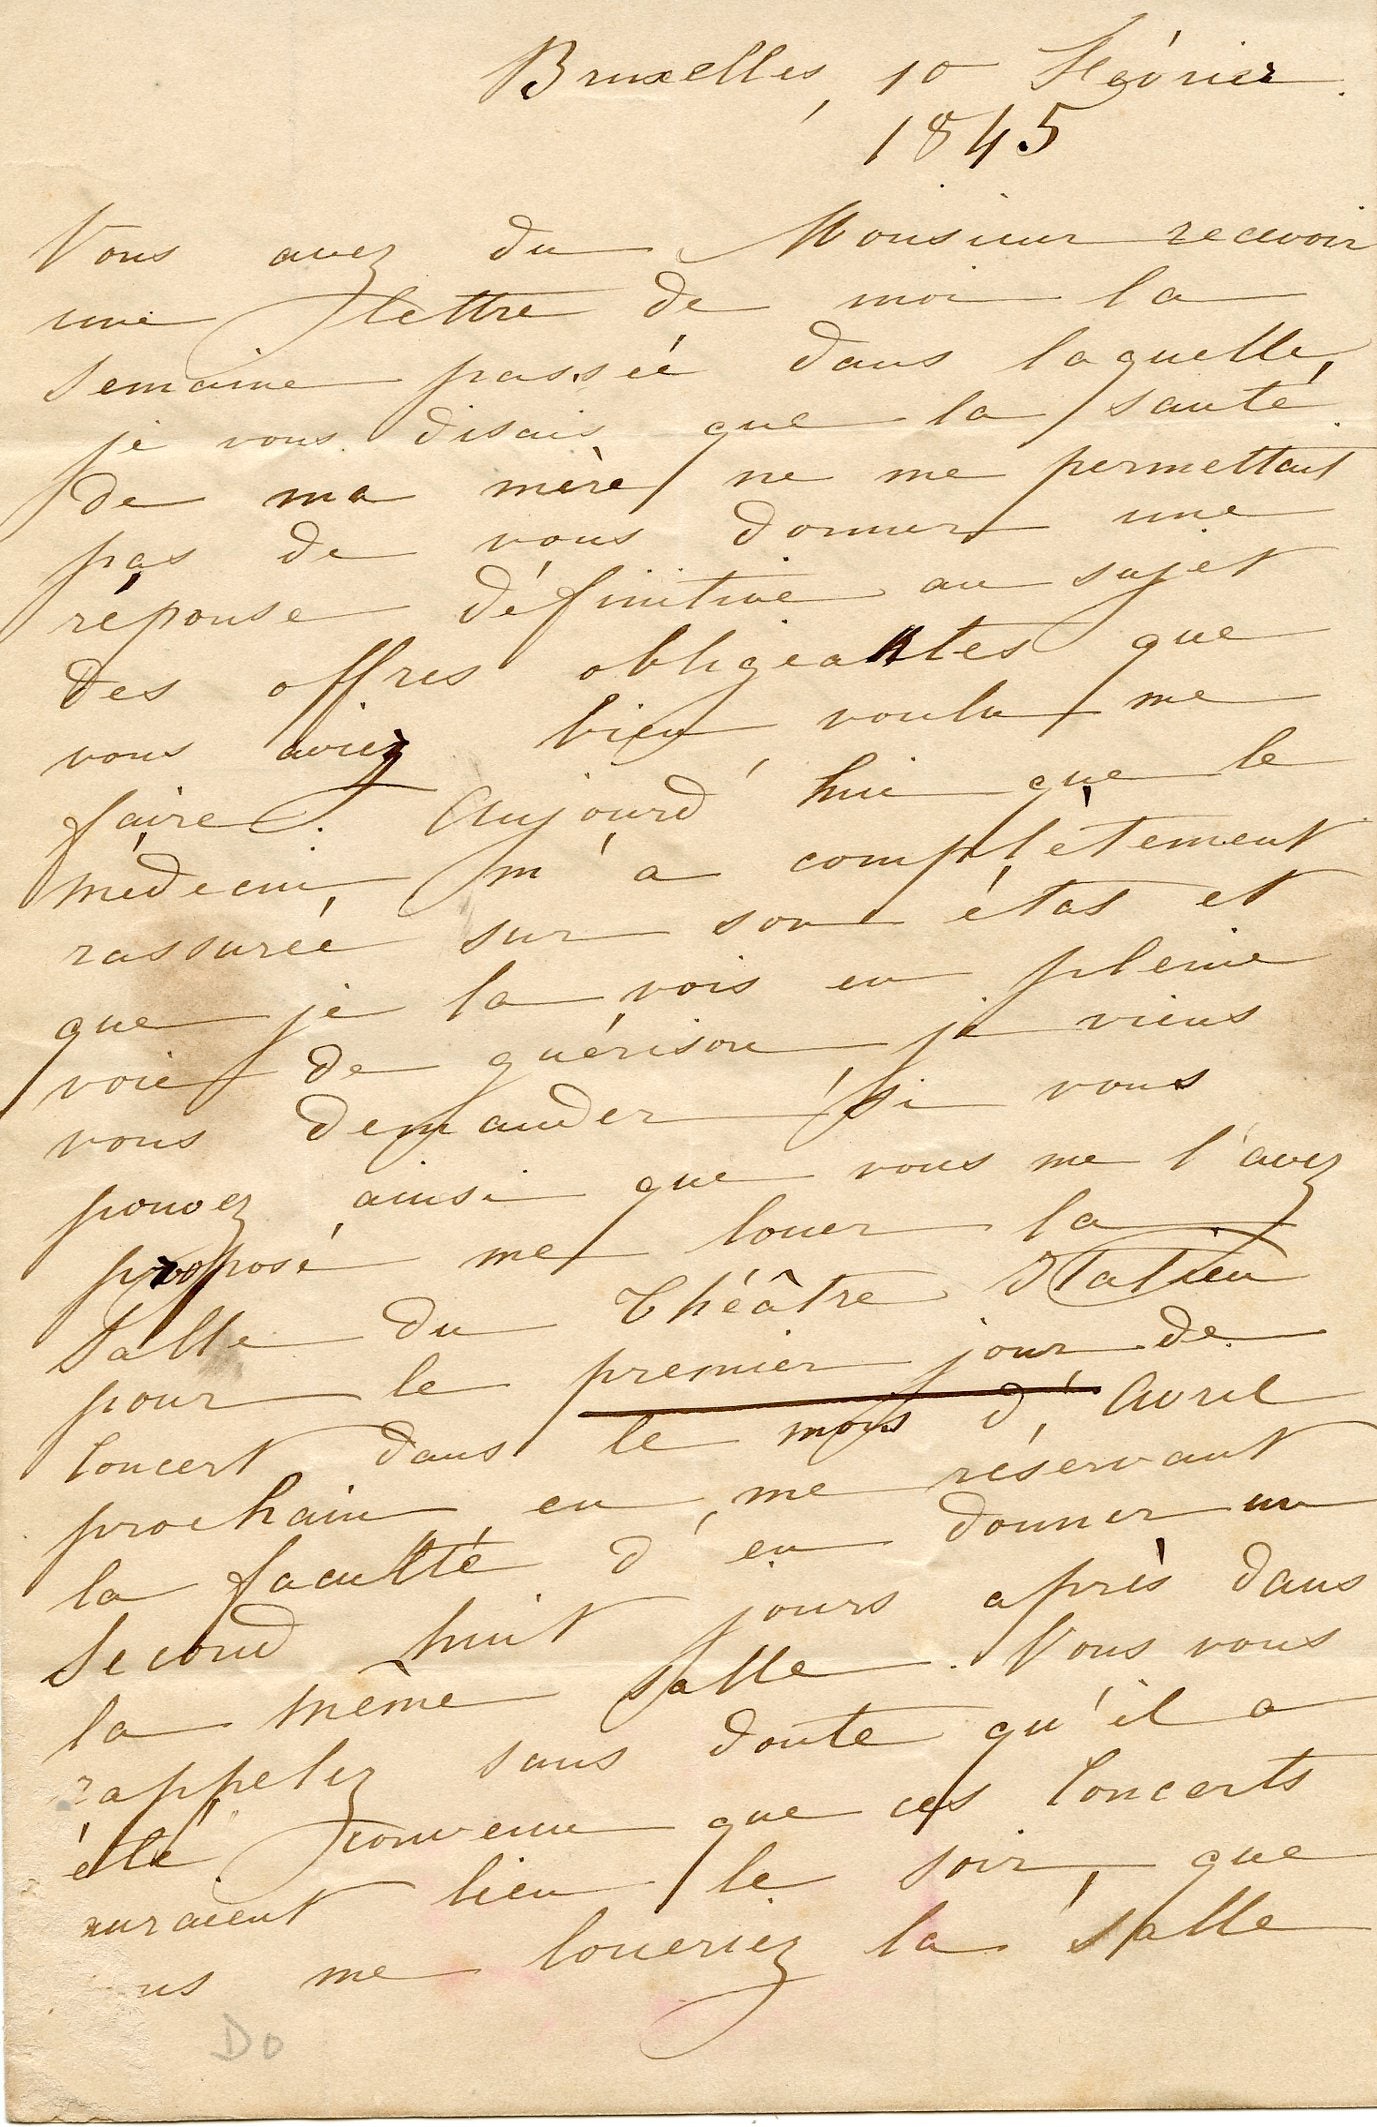 Bruxelles, 10 Février.
1845
Vous avez du Monsieur recevoir
une lettre de moi la
semaine passée dans laquelle,
je vous disais que la santé
de ma mère ne me permettait
pas de vous donner une
réponse définitive au sujet
des offres obligeantes que
vous aviez bien voulu me
faire. Aujourd'hui que le
médecin, m'a complètement
rassurée sur son état et
que je la vois en pleine
voie de guérison je viens
vous demander si vous
pouvez, ainsi que vous me l'avez
proposé me louer la
Salle du Théâtre Italien
pour le premier jour de
Concert dans le mois d'Avril
prochain en me réservant
la faculté d'en donner un
second huit jours après dans
la même Salle. Vous vous
rappelez sans doute qu'il a
été convenu que ces Concerts
auraient lieu le soir, que
me loueriez la Salle
Do